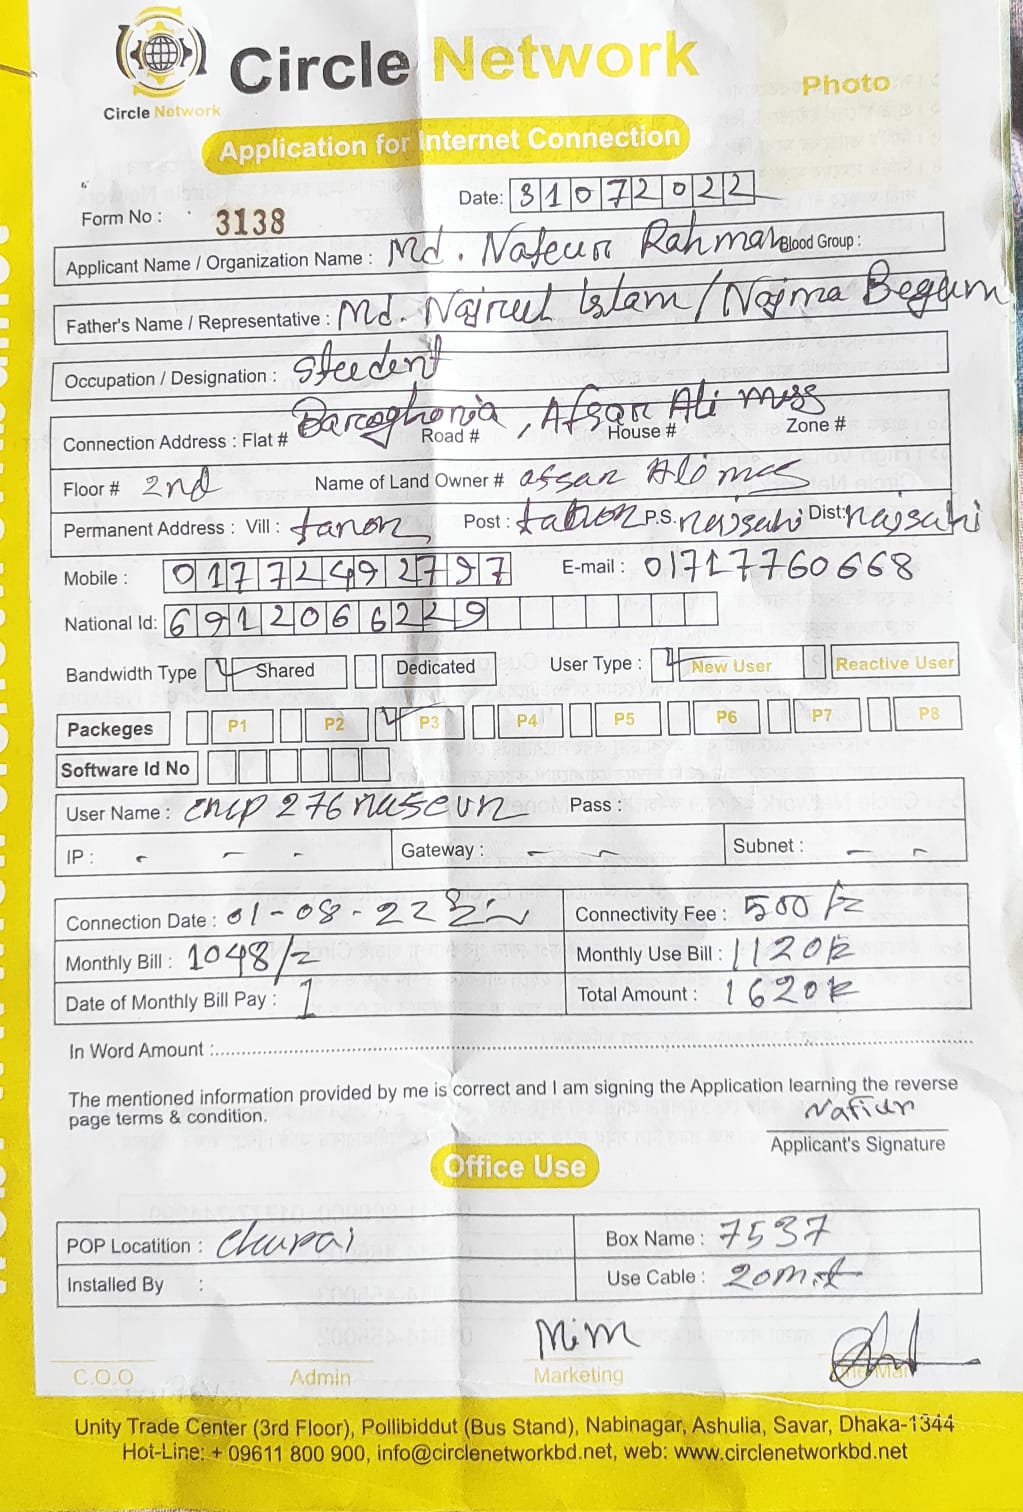 Circle Network
Circle Network
Photo
Application for Internet Connection
Date: 31072022
Form No : 3138
Applicant Name / Organization Name : Md. Nafeur Rahman Blood Group :
Father's Name / Representative : Md. Najrul Islam / Najma Begum
Occupation / Designation : Student
Connection Address : Flat # Road # , Afsar Ali mess House # Zone #
Floor # 2nd Name of Land Owner # afsar Ali mess
Permanent Address : Vill : tanor Post : P.S. rajsahi Dist: rajsahi
Mobile : 01772492797 E-mail : 01717760668
National Id: 6912066229
Bandwidth Type Shared Dedicated User Type : New User Reactive User
Packeges P1 P2 P3 P4 P5 P6 P7 P8
Software Id No
User Name : cncp276naseur Pass :
IP : - - - Gateway : - - Subnet : - -
Connection Date : 01-08-22 Connectivity Fee : 500/=
Monthly Bill : 1048/= Monthly Use Bill : 1120tk
Date of Monthly Bill Pay : 1 Total Amount : 1620tk
In Word Amount :
The mentioned information provided by me is correct and I am signing the Application learning the reverse
page terms & condition.
Nafiur
Applicant's Signature
Office Use
POP Locatition : Box Name : 7537
Installed By : Use Cable : 20mit
Mim
C.O.O Admin Marketing
Unity Trade Center (3rd Floor), Pollibiddut (Bus Stand), Nabinagar, Ashulia, Savar, Dhaka-1344
Hot-Line: + 09611 800 900, info@circlenetworkbd.net, web: www.circlenetworkbd.net